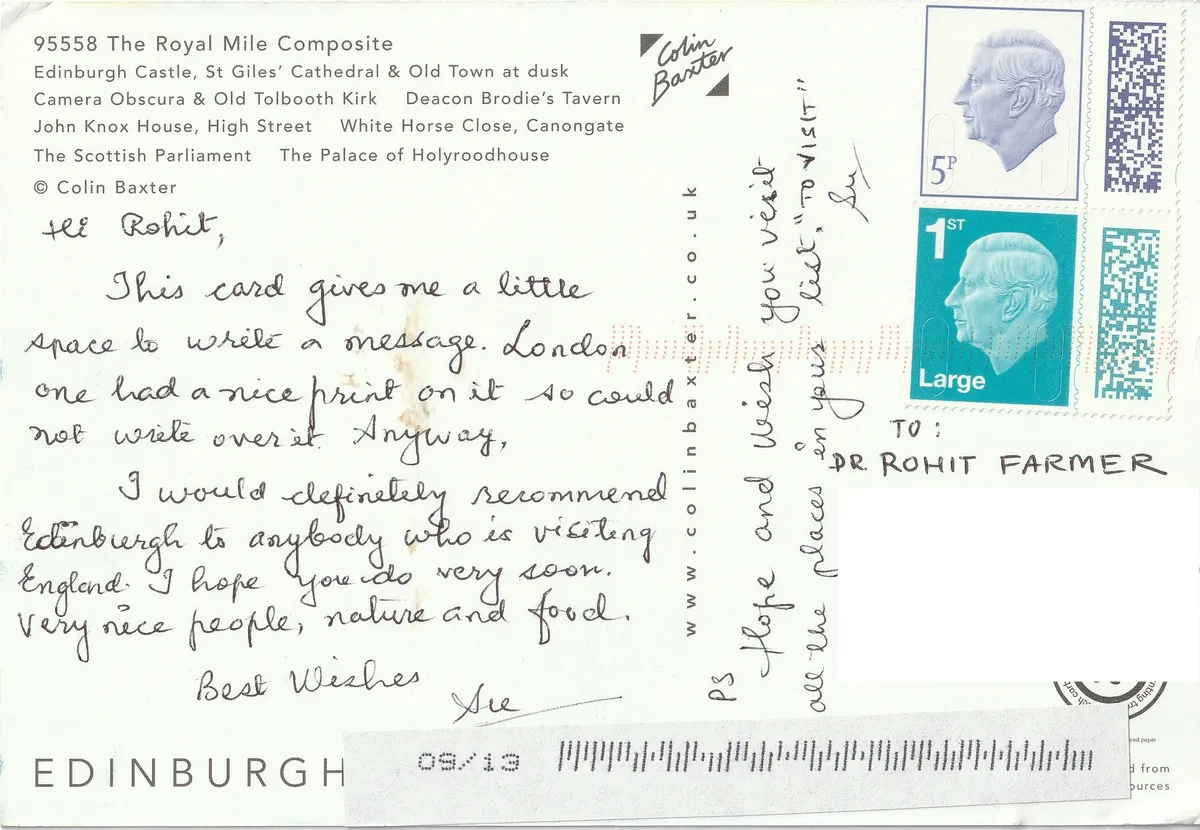 95558 The Royal Mile Composite
Edinburgh Castle, St Giles' Cathedral & Old Town at dusk
Camera Obscura & Old Tolbooth Kirk Deacon Brodie's Tavern
John Knox House, High Street White Horse Close, Canongate
The Scottish Parliament The Palace of Holyroodhouse
© Colin Baxter
Hi Rohit,
This card gives me a little
space to write a message. London
one had a nice print on it so could
not write over it. Anyway,
I would definitely recommend
Edinburgh to anybody who is visiting
England. I hope you do very soon.
Very nice people, nature and food.
Best Wishes
Sue
EDINBURGH
Colin
Baxter
www.colinbaxter.co.uk
PS Hope and Wish you visit
all the places in your list, "TO VISIT"
Sue
5P
1ST
Large
TO:
DR. ROHIT FARMER
09/13